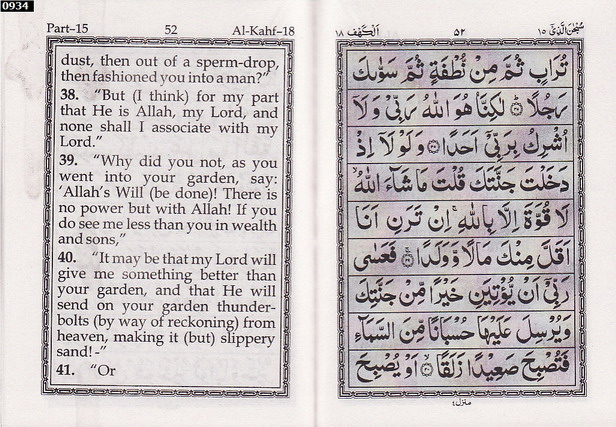 0934
Part-15 52 Al-Kahf-18
dust, then out of a sperm-drop,
then fashioned you into a man?"
38. "But (I think) for my part
that He is Allah, my Lord, and
none shall I associate with my
Lord."
39. "Why did you not, as you
went into your garden, say:
'Allah's Will (be done)! There is
no power but with Allah! If you
do see me less than you in wealth
and sons,"
40. "It may be that my Lord will
give me something better than
your garden, and that He will
send on your garden thunder-
bolts (by way of reckoning) from
heaven, making it (but) slippery
sand! -"
41. "Or
سُبْحٰنَ الَّذِىْۤ ١٥ ٥٢ اَلْكَهْف ١٨
تُرَابٍ ثُمَّ مِنْ نُّطْفَةٍ ثُمَّ سَوّٰىكَ
رَجُلًا ۝٣٧ لٰكِنَّا۠ هُوَ اللّٰهُ رَبِّىْ وَلَاۤ
اُشْرِكُ بِرَبِّىْۤ اَحَدًا ۝٣٨ وَلَوْلَاۤ اِذْ
دَخَلْتَ جَنَّتَكَ قُلْتَ مَا شَآءَ اللّٰهُ ۙ
لَا قُوَّةَ اِلَّا بِاللّٰهِ ۚ اِنْ تَرَنِ اَنَا
اَقَلَّ مِنْكَ مَالًا وَّوَلَدًا ۝٣٩ ۚ فَعَسٰى
رَبِّىْۤ اَنْ يُّؤْتِيَنِ خَيْرًا مِّنْ جَنَّتِكَ
وَيُرْسِلَ عَلَيْهَا حُسْبَانًا مِّنَ السَّمَآءِ
فَتُصْبِحَ صَعِيْدًا زَلَقًا ۝٤٠ ۙ اَوْ يُصْبِحَ
منزل٤